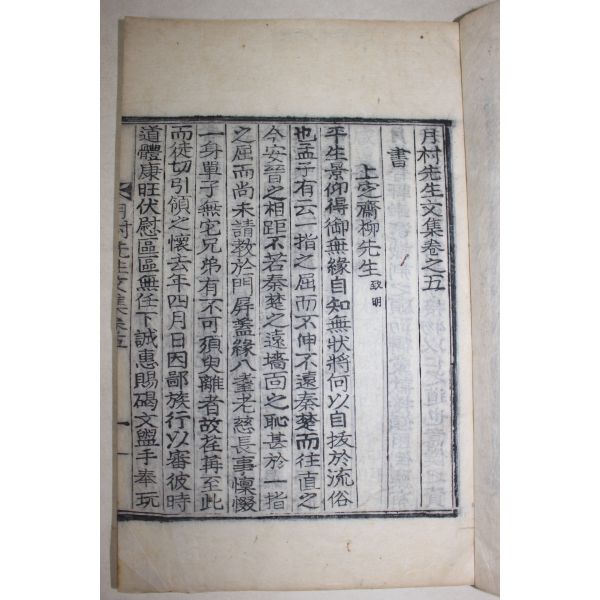 月村先生文集卷之五
書
上定齋柳先生 致明
平生景仰得御無緣自知無狀將何以自拔於流俗
也孟子有云一指之屈而不伸不遠秦楚而往直之
今安晉之相距不若秦楚之遠墻面之恥甚於一指
之屈而尚未請敎於門屛盖緣八耋老慈長事懍惙
一身單孑無宅兄弟有不可須臾離者故荏苒至此
而徒切引領之懷去年四月日因鄙族行以審彼時
道體康旺伏慰區區無任下誠惠賜碣文盥手奉玩
月村先生文集卷五
一